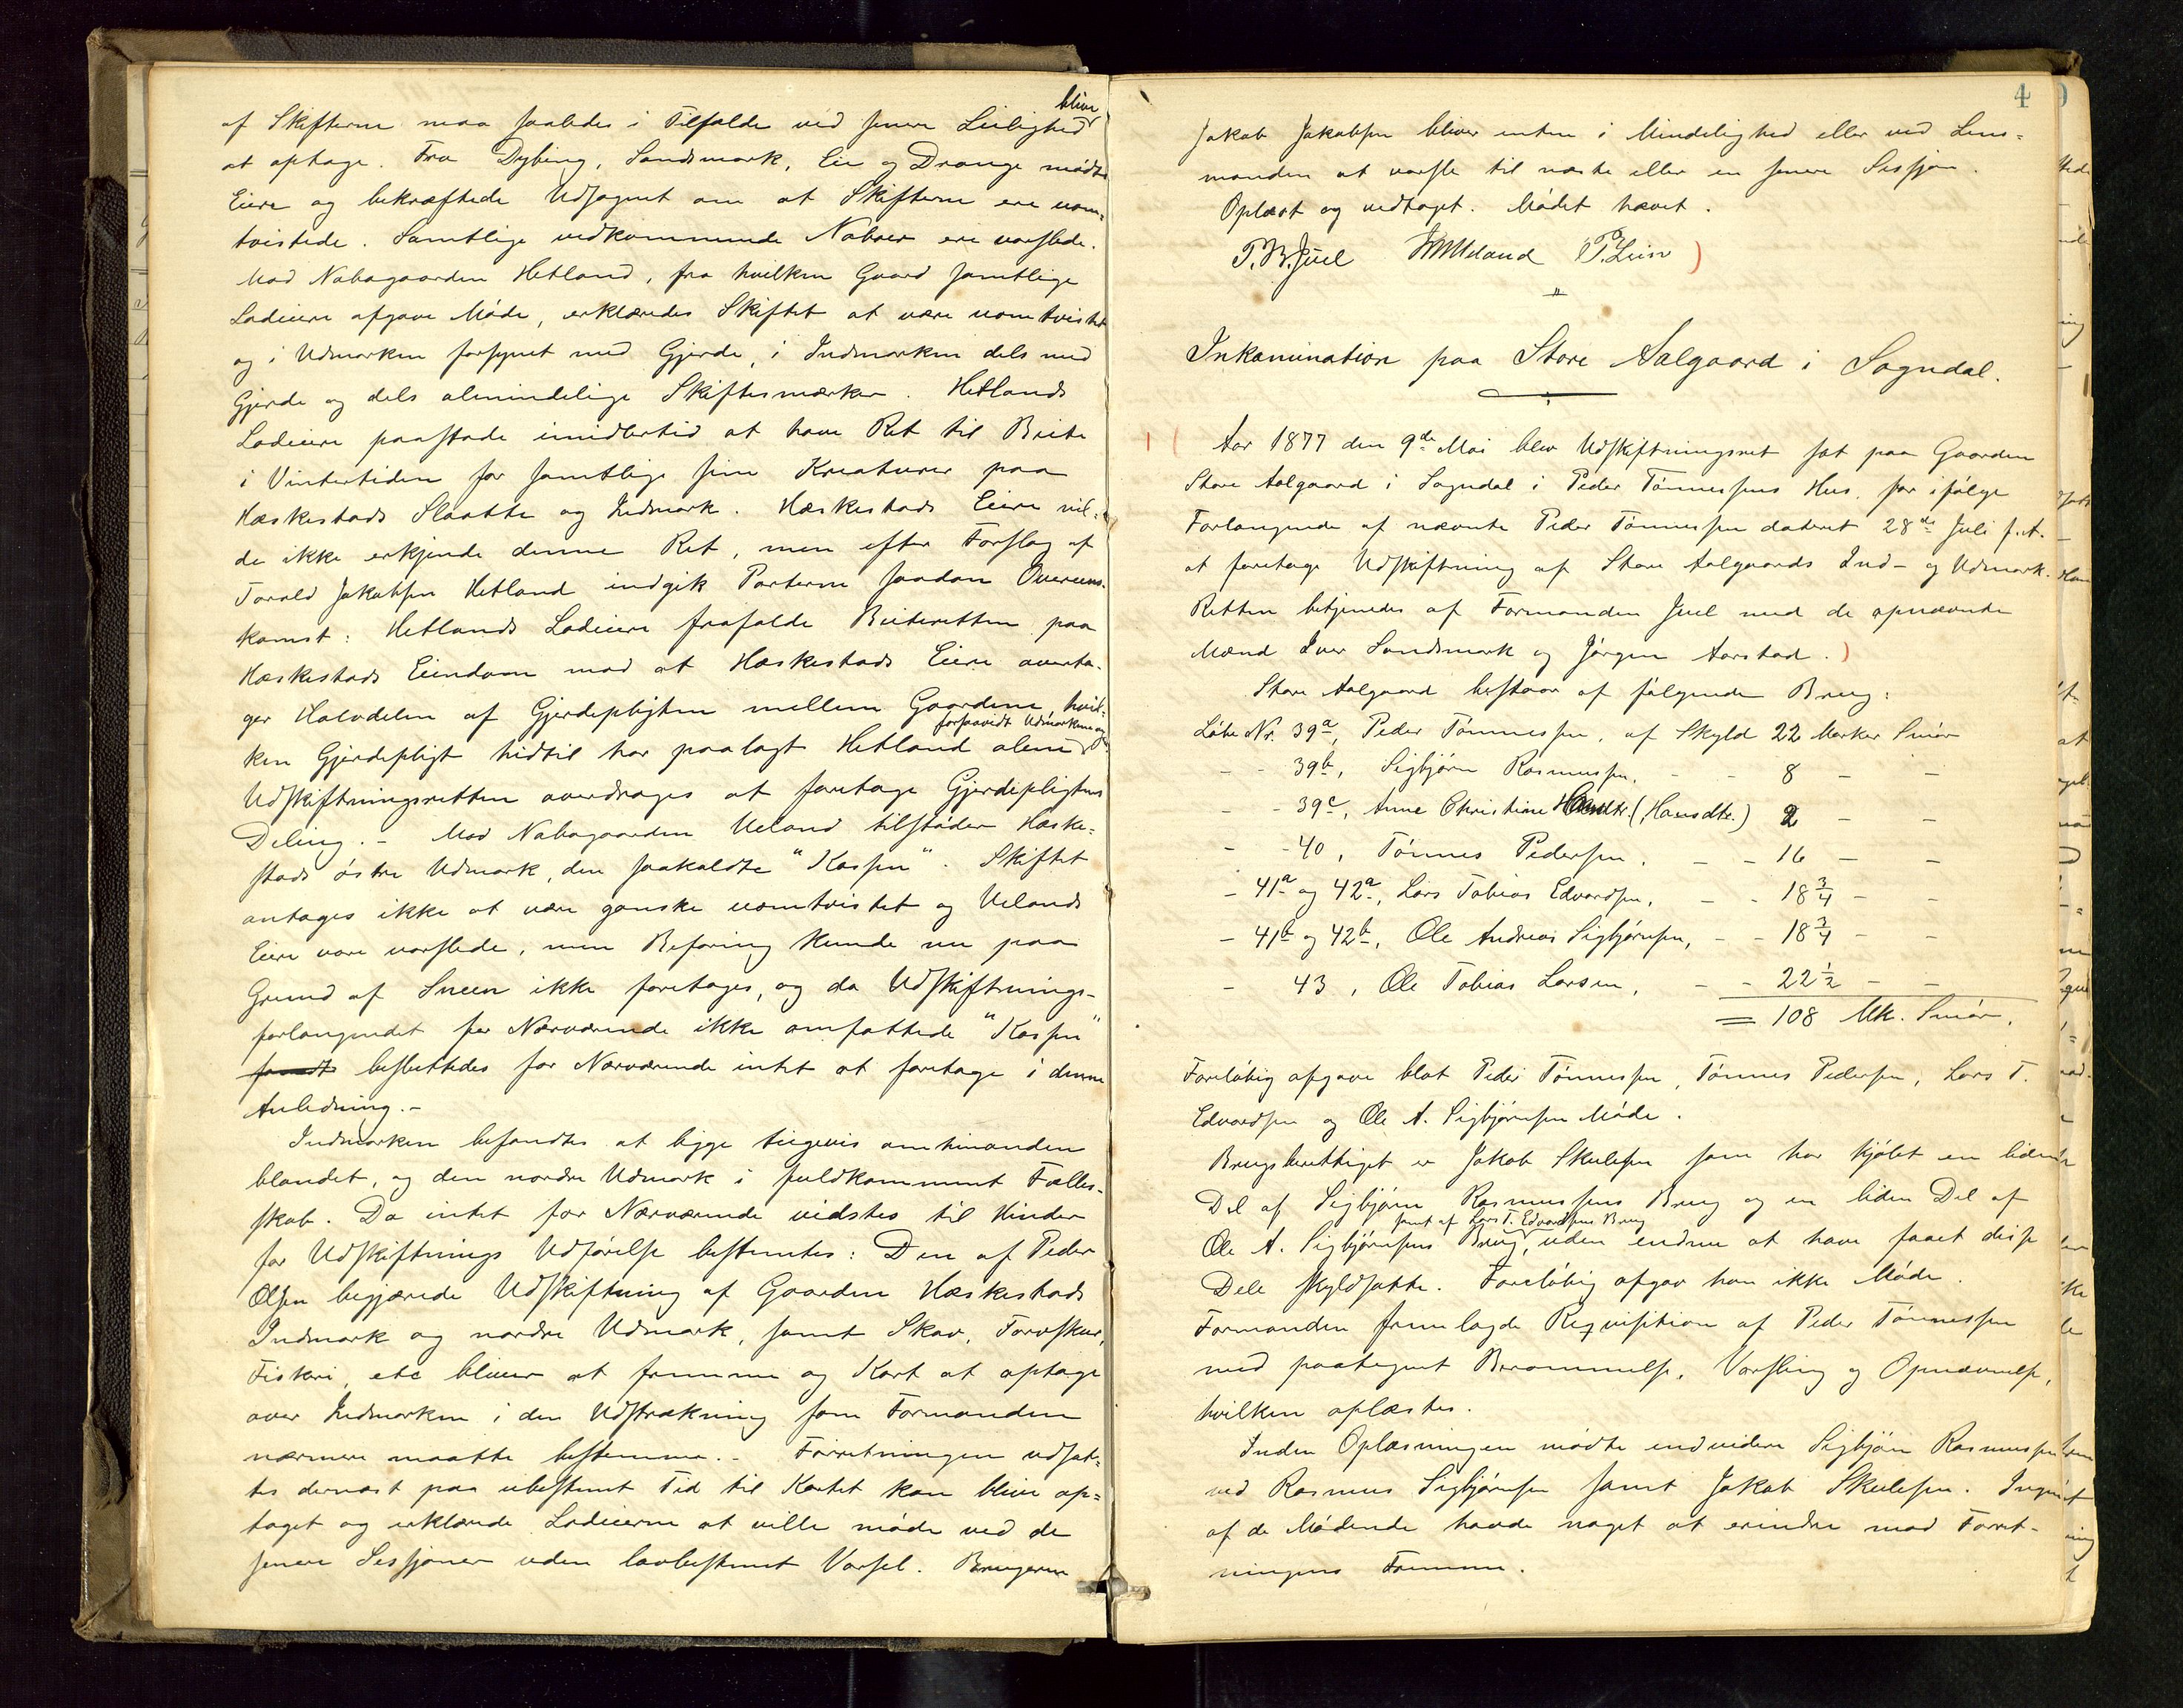 af Skifterne maa saaledes i Tilfælde ved senere Leilighed blive
at optage. Fra Dybing, Sandsmark, Eie og Drange mødte
Eiere og bekræftede Udsagnet om at Skifterne ere uom=
tvistede. Samtlige vedkommende Naboer ere varslede.
Mod Nabogaarden Hetland, fra hvilken Gaard samtlige
Lodeiere afgave Møde, erklæredes Skiftet at være uomtvistet
og i Udmarken forsynet med Gjerde, i Indmarken dels med
Gjerde og dels almindelige Skiftesmærker. Hetlands
Lodeiere paastode imidlertid at have Ret til Beite
i Vintertiden for samtlige sine Kreaturer paa
Hæskestads Slaatte og Indmark. Hæskestads Eiere vil=
de ikke erkjende denne Ret, men efter Forslag af
Torald Jakobsen Hetland indgik Parterne saadan Overens-
komst: Hetlands Lodeiere frafalde Beiteretten paa
Hæskestads Eiendom mod at Hæskestads Eiere overta-
ger Halvdelen af Gjerdepligten mellem Gaardene, hvil-
forsaavidt Udmarkene og
ken Gjerdepligt hidtil har paalagt Hetland alene
Udskiftningsretten overdrages at foretage Gjerdepligtens
Deling. - Mod Nabogaarden Ueland tilstøder Hæske-
stads østre Udmark, den saakaldte "Kossen". Skiftet
antages ikke at være ganske uomtvistet og Uelands
Eiere vare varslede, men Befaring kunde nu paa
Grund af Sneen ikke foretages, og da Udskiftnings-
forlangendet for Nærværende ikke omfattede "Kossen"
besluttedes for Nærværende intet at foretage i denne
Anledning. -
Indmarken befandtes at ligge teigevis om hinanden
blandet, og den nordre Udmark i fuldkomment Fælles-
skab. Da intet for Nærværende vidstes til Hinder
for Udskiftnings Udførelse bestemtes: Den af Peder
Olsen begjærede Udskiftning af Gaarden Hæskestads
Indmark og nordre Udmark, samt Skov, Torvskur,
Fiskeri, etc bliver at fremme og Kart at optage
over Indmarken i den Udstrækning som Formanden
nærmere maatte bestemme. - Forretningen udsat-
tes dernæst paa ubestemt Tid til Kartet kan blive op=
taget og erklærede Lodeierne at ville møde ved de
senere Sessjoner uden lovbestemt Varsel. Brugeren
4
Jakob Jakobsen bliver enten i Mindelighed eller ved Lens=
manden at varsle til næste eller en senere Sessjon.
Oplæst og vedtaget. Mødet hævet.
T. B. Juel
Inkamination paa Store Aalgaard i Sogndal.
Aar 1877 den 9de Mai blev Udskiftningsret sat paa Gaarden
Store Aalgaard i Sogndal i Peder Tønnessens Hus, for ifølge
Forlangende af nævnte Peder Tønnessen dateret 28de Juli f.A.
at foretage Udskiftning af Store Aalgaards Ind- og Udmark.
Retten betjenedes af Formanden Juel med de opnævnte
Mænd Iver Sandsmark og Jørgen Aarstad.)
Store Aalgaard bestaar af følgende Brug:
Løbe Nr. 39a, Peder Tønnessen, af Skyld 22 Marker Smør
- - 39b, Sigbjørn Rasmussen, - - 8 - -
- - 39c, Anne Christine (Hansdtr.) 2 - -
- - 40, Tønnes Pedersen, - - 16 - -
- 41a og 42a, Lars Tobias Edvardsen, - - 18 3/4 - -
- 41b og 42b, Ole Andreas Sigbjørnsen, - - 18 3/4 - -
- 43, Ole Tobias Larsen, - - 22 1/2 - -
= 108 Mk. Smør.
Foreløbig afgave blot Peder Tønnessen, Tønnes Pedersen, Lars T.
Edvardsen og Ole A. Sigbjørnsen Møde.
Brugsberettiget er Jakob Skulesen som har kjøbt en liden
Del af Sigbjørn Rasmussens Brug og en liden Del af
samt af Lars T. Edvardsens Brug
Ole A. Sigbjørnsens Brug, uden endnu at have faaet disse
Dele skyldsatte. Foreløbig afgav han ikke Møde.
Formanden fremlagde Reqvisition af Peder Tønnessen
med paategnet Berammelse, Varsling og Opnævnelse,
hvilken oplæstes.
Inden Oplæsningen mødte endvidere Sigbjørn Rasmussen
ved Rasmus Sigbjørnsen samt Jakob Skulesen. Ingen
af de Mødende havde noget at erindre mod Forret-
ningens Fremme.